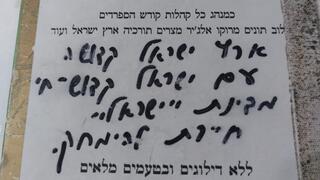 כמנהג כל קהלות קודש הספרדים
לוב תונים מרוקו אלג'יר מצרים תורכיה ארץ ישראל ועוד
ארץ ישראל קדושה
עם ישראל קדוש-חי
מדינת "ישראל"
חייבת להימחק.
ללא דילוגים ובטעמים מלאים